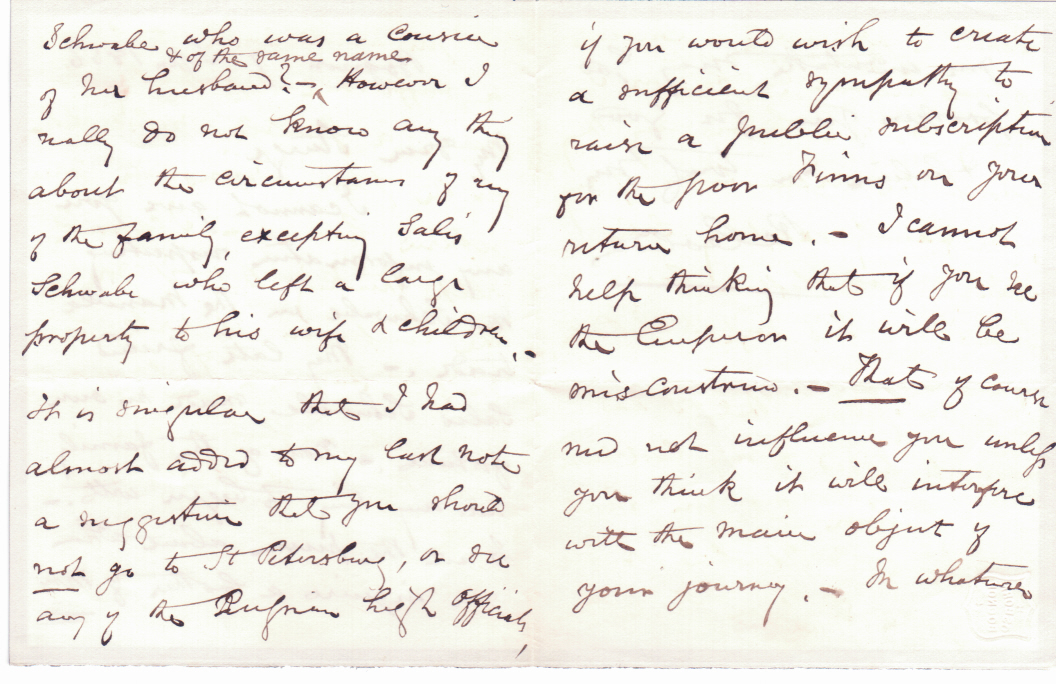 Schwabe who was a cousin
& of the same name
of her husband? - However I
really do not know any thing
about the circumstances of any
of the family, excepting Salis
Schwabe who left a large
property to his wife & children, -
It is singular that I had
almost added to my last note
a suggestion that you should
not go to St Petersburg, or see
any of the Russian high officials,
if you would wish to create
a sufficient sympathy to
raise a public subscription
for the poor Finns on your
return home. - I cannot
help thinking that if you see
the Emperor it will be
misconstrued. - That of course
need not influence you unless
you think it will interfere
with the main object of
your journey. - In whatever